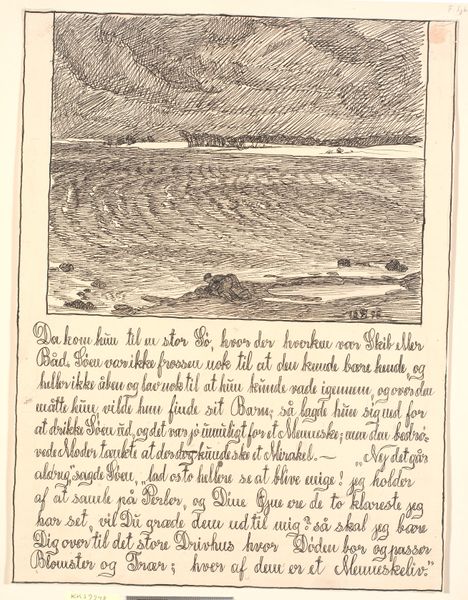 Da kom hun til en stor Sö, hvor der hverken var Skib eller
Båd. Söen var ikke frossen nok til at den kunde bære hende, og
heller ikke åben og lav nok til at hun kunde vade igennem, og over den
måtte hun, vilde hun finde sit Barn; så lagde hun sig ned for
at drikke Söen ud, og det var jo umuligt for et Menneske; men den bedrö-
vede Moder tænkte at der dog kunde ske et Mirakel. — "Nej det går
aldrig" sagde Söen, "lad os to hellere se at blive enige! jeg holder
af at samle på Perler, og Dine Öjne ere de to klareste jeg
har set, vil Du græde dem ud til mig? så skal jeg bære
Dig over til det store Drivhus hvor Döden bor og passer
Blomster og Træer; hver af dem er et Menneskeliv."